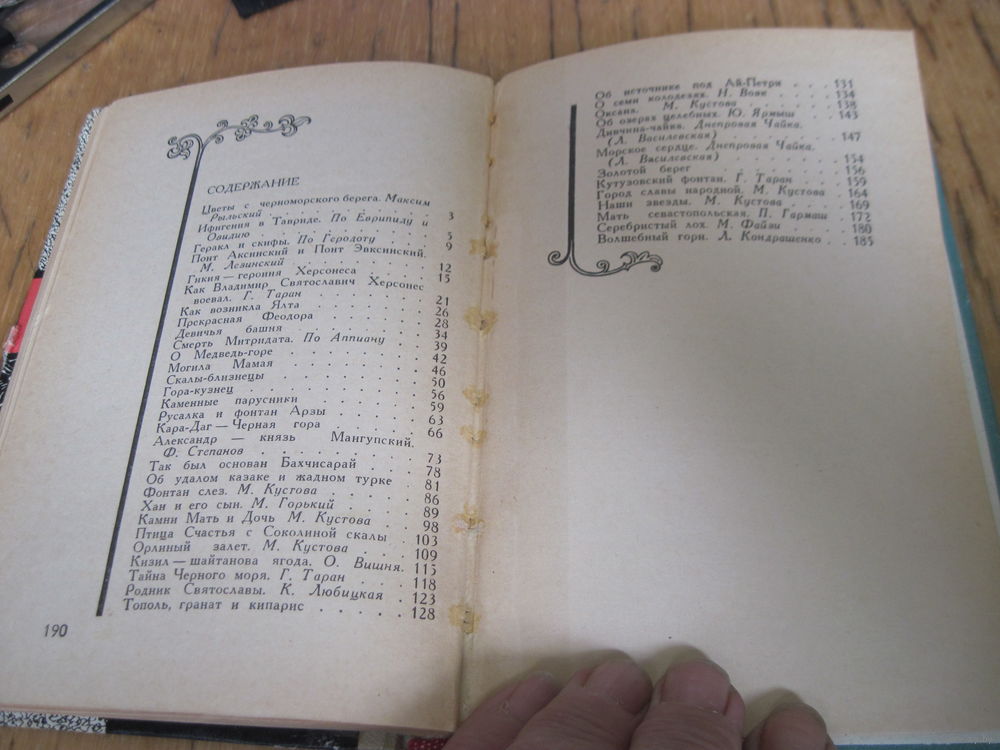 СОДЕРЖАНИЕ
Цветы с черноморского берега. Максим
Рыльский . . . . . . . . . . 3
Ифигения в Тавриде. По Еврипиду и
Овидию . . . . . . . . . . 5
Геракл и скифы. По Геродоту . . . 9
Понт Аксинский и Понт Эвксинский.
М. Лезинский . . . . . . . . 12
Гикия — героиня Херсонеса . . . . 15
Как Владимир Святославич Херсонес
воевал. Г. Таран . . . . . . . 21
Как возникла Ялта . . . . . . . 26
Прекрасная Феодора . . . . . . 28
Девичья башня . . . . . . . . 34
Смерть Митридата. По Аппиану . . 39
О Медведь-горе . . . . . . . . 42
Могила Мамая . . . . . . . . 46
Скалы-близнецы . . . . . . . . 50
Гора-кузнец . . . . . . . . . 56
Каменные парусники . . . . . . 59
Русалка и фонтан Арзы . . . . . 63
Кара-Даг — Черная гора . . . . . 66
Александр — князь Мангупский.
Ф. Степанов . . . . . . . . . 73
Так был основан Бахчисарай . . . 78
Об удалом казаке и жадном турке . 81
Фонтан слез. М. Кустова . . . . . 86
Хан и его сын. М. Горький . . . . 89
Камни Мать и Дочь М. Кустова . . 98
Птица Счастья с Соколиной скалы . 103
Орлиный залет. М. Кустова . . . 109
Кизил — шайтанова ягода. О. Вишня. 115
Тайна Черного моря. Г. Таран . . . 118
Родник Святославы. К. Любицкая . 123
Тополь, гранат и кипарис . . . . . 128
190
Об источнике под Ай-Петри . . . 131
О семи колодезях. Н. Вовк . . . . 134
Оксана. М. Кустова . . . . . . 138
Об озерах целебных. Ю. Ярмыш . . 143
Дивчина-чайка. Днепровая Чайка.
(Л. Василевская) . . . . . . . 147
Морское сердце. Днепровая Чайка.
(Л. Василевская) . . . . . . . 154
Золотой берег . . . . . . . . 156
Кутузовский фонтан. Г. Таран . . . 159
Город славы народной. М. Кустова . 164
Наши звезды. М. Кустова . . . . 169
Мать севастопольская. П. Гармаш . 172
Серебристый лох. М. Файзи . . . 180
Волшебный горн. Л. Кондрашенко . 185